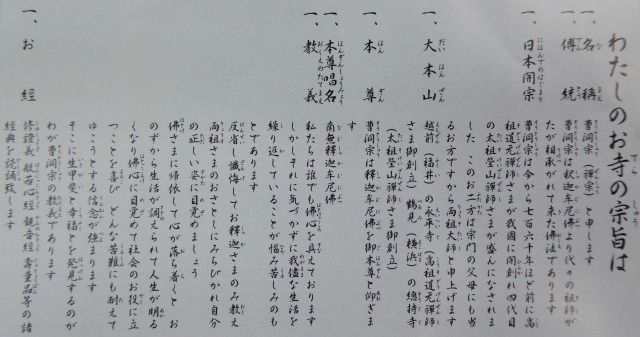 わたしのお寺の宗旨は
一、名稱
曹洞宗(禅宗)と申します
一、傳統
曹洞宗は釈迦牟尼佛より代々の祖師が
たが相承がれて来た佛法であります
一、日本開宗
曹洞宗は今から七百六十年ほど前に高
祖道元禅師さまが我國に開創れ四代目
の太祖瑩山禅師さまが盛んになされま
した このお二方は宗門の父母にも当
るお方ですから両祖大師と申上げます
一、大本山
越前(福井)の永平寺(高祖道元禅師
さま御創立)鶴見(横浜)の總持寺
(太祖瑩山禅師さま御創立)
一、本尊
曹洞宗は釋迦牟尼佛を御本尊と仰ぎま
す
一、本尊唱名
南無釋迦牟尼佛
一、教義
私たちは誰でも佛心を具えております
しかしそれに気づかずに我儘な生活を
繰り返していることが悩み苦しみのも
とであります
反省し懺悔してお釋迦さまのみ教え
両祖さまのおさとしにみちびかれ自分
の正しい姿に目覚めましょう
佛さまに帰依して心が落ち着くと お
のずから生活が調えられて人生が明る
くなり佛心に目覚めて社会のお役に立
つことを喜び どんな苦難にも耐えて
ゆこうとする信念が強まります
そこに生甲斐と幸福とを発見するのが
わが曹洞宗の教義であります
一、お經
修證義 般若心經 觀音經 壽量品等の諸
經典を読誦致します